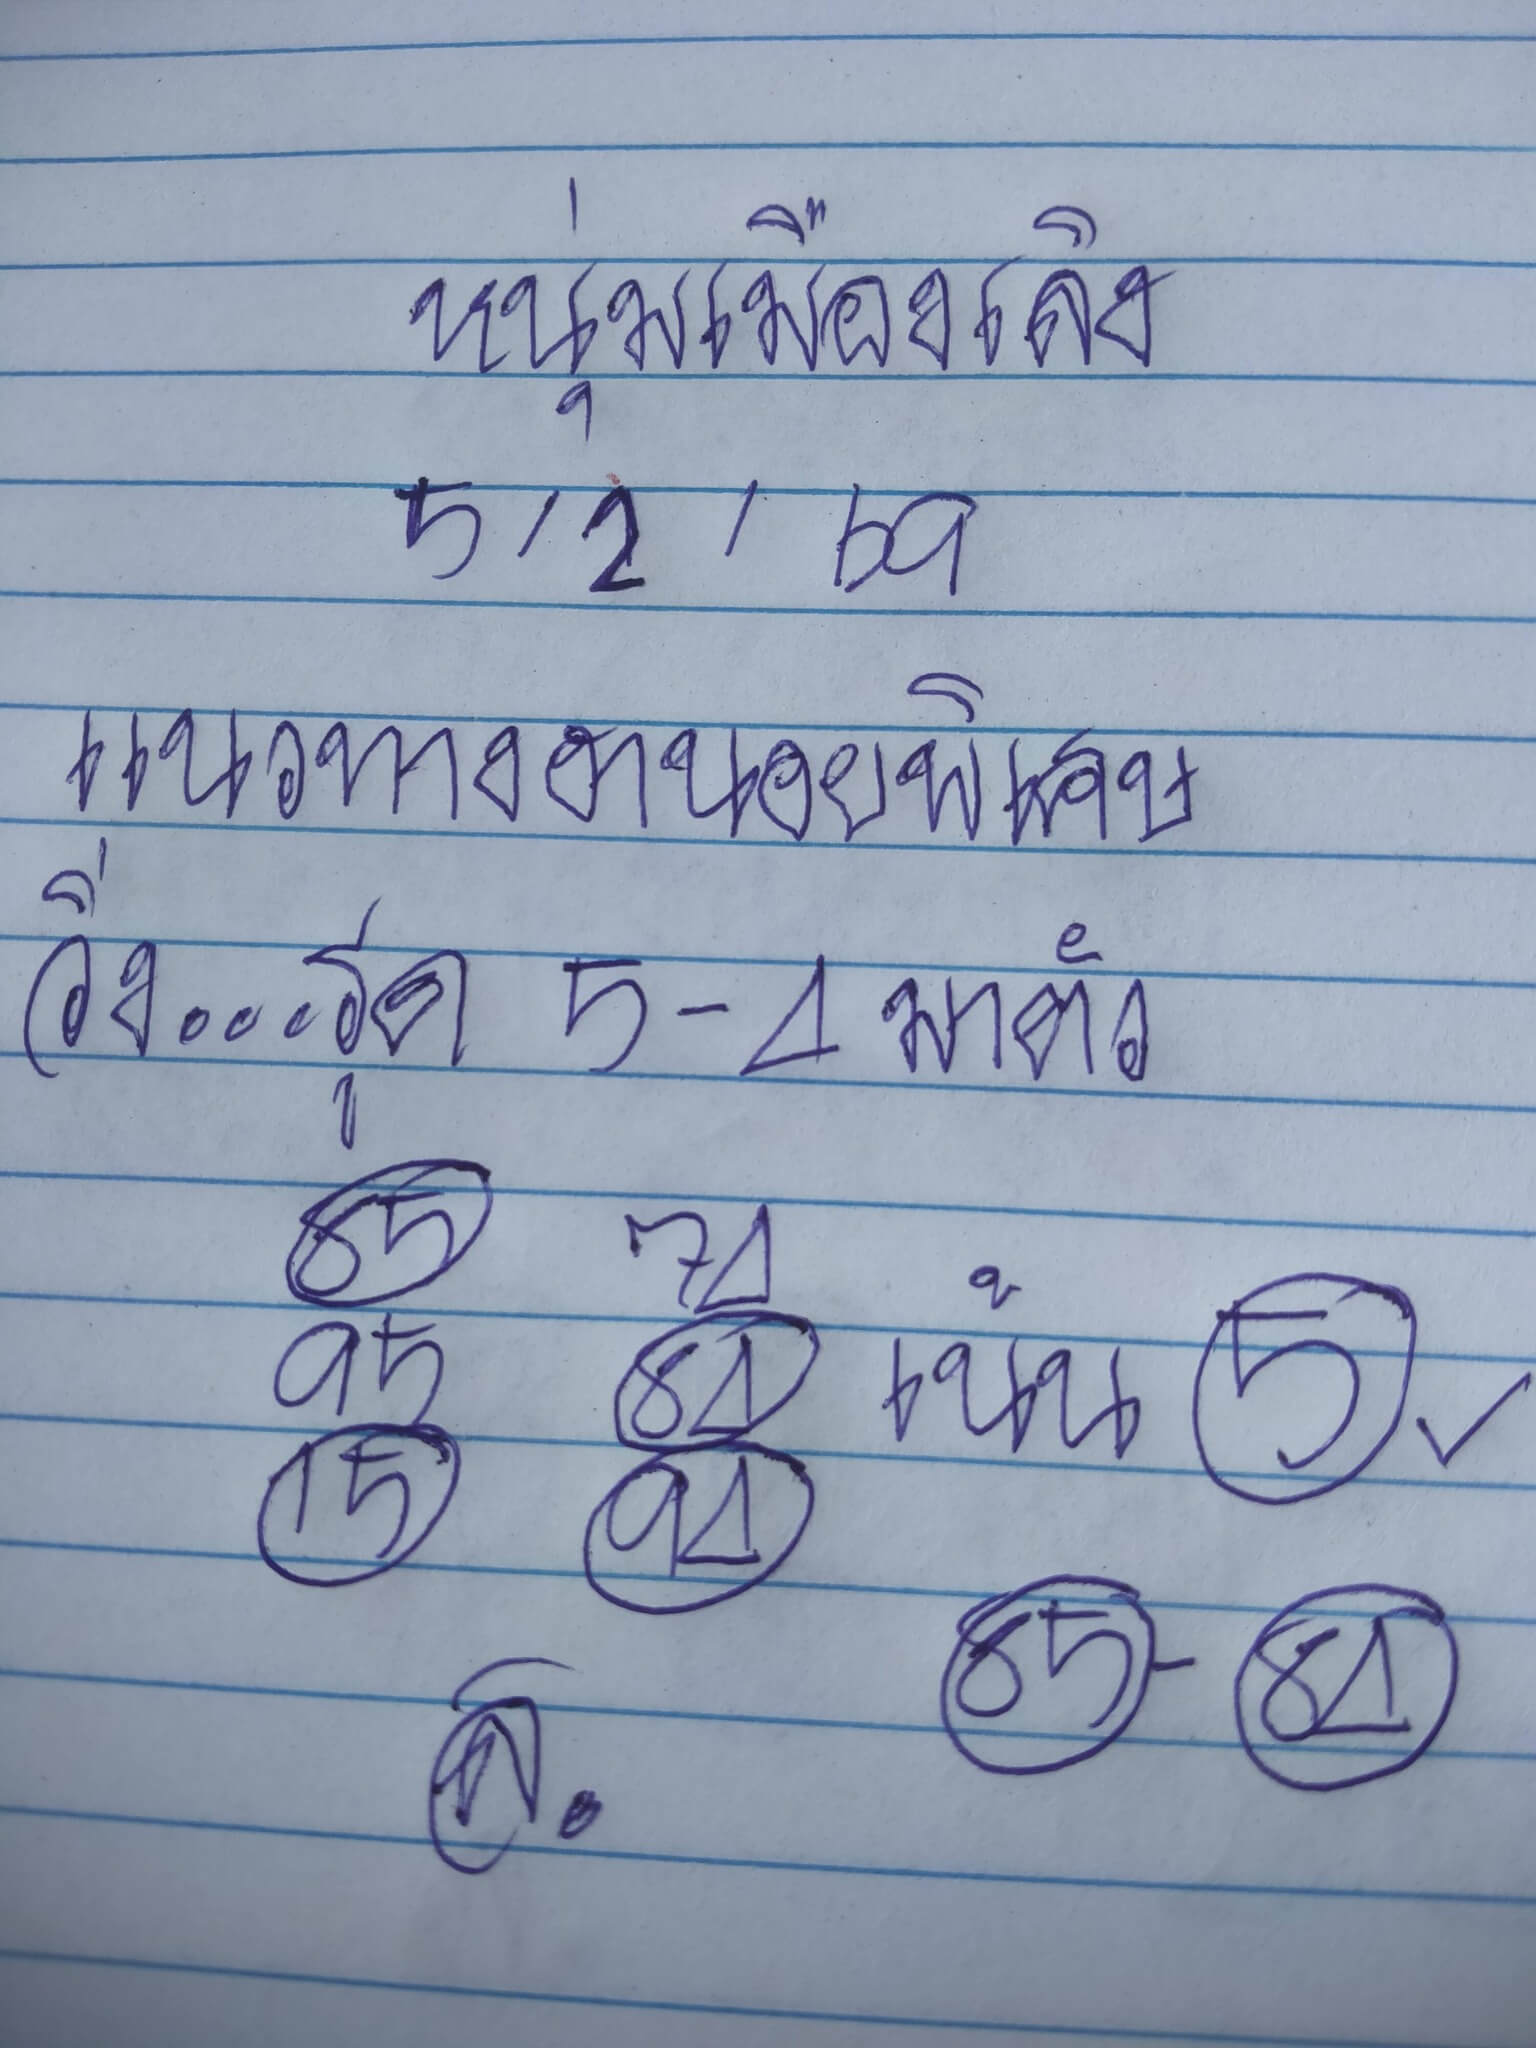 หนุ่มเมืองเลิง
5/2/69
แนวทางฮานอยพิเศษ
วิ่ง....รูด 5-4 มาตัว
85 74
95 84 เน้น 5 ✓
15 94
85-84